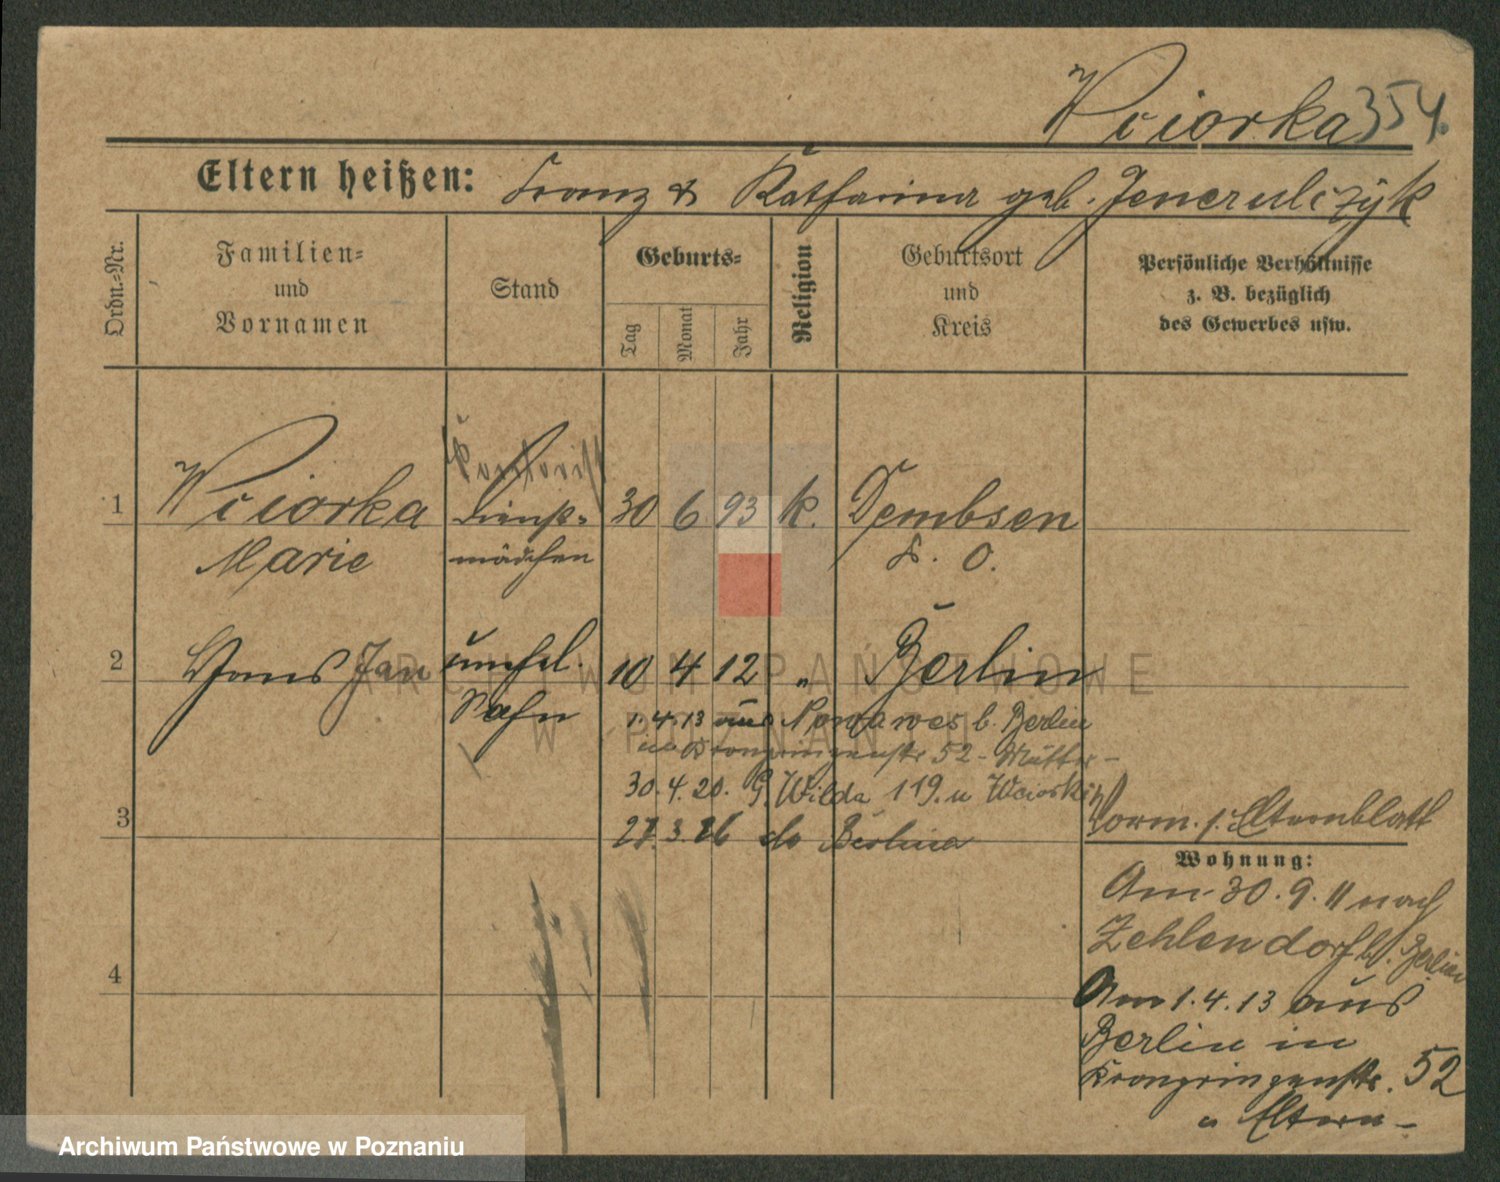 Wciorka 354.
Eltern heißen: Franz & Katharina geb. Jeneralczyk
Ordn.-Nr.
Familien-
und
Vornamen
Stand
Geburts-
Tag
Monat
Jahr
Religion
Geburtsort
und
Kreis
Persönliche Verhältnisse
z. B. bezüglich
des Gewerbes usw.
Kontorist
1 Wciorka Dienst- 30 6 93 k. Dembsen
Marie mädchen P. O.
2 Hans Jan unehel. 10 4 12 " Berlin
Sohn 1.4.13 aus Nowawes b. Berlin
in Kronprinzenstr 52 - Mutter -
30.4.20. G. Wilda 119. u Wciorka
3 27.3.26 do Berlina
Vorm. s. Elternblatt
Wohnung:
Am 30.9.11 nach
Zehlendorf b. Berlin
4
Am 1.4.13 aus
Berlin in
Kronprinzenstr. 52
u Eltern -
ARCHIWUM PAŃSTWOWE
W POZNANIU
Archiwum Państwowe w Poznaniu